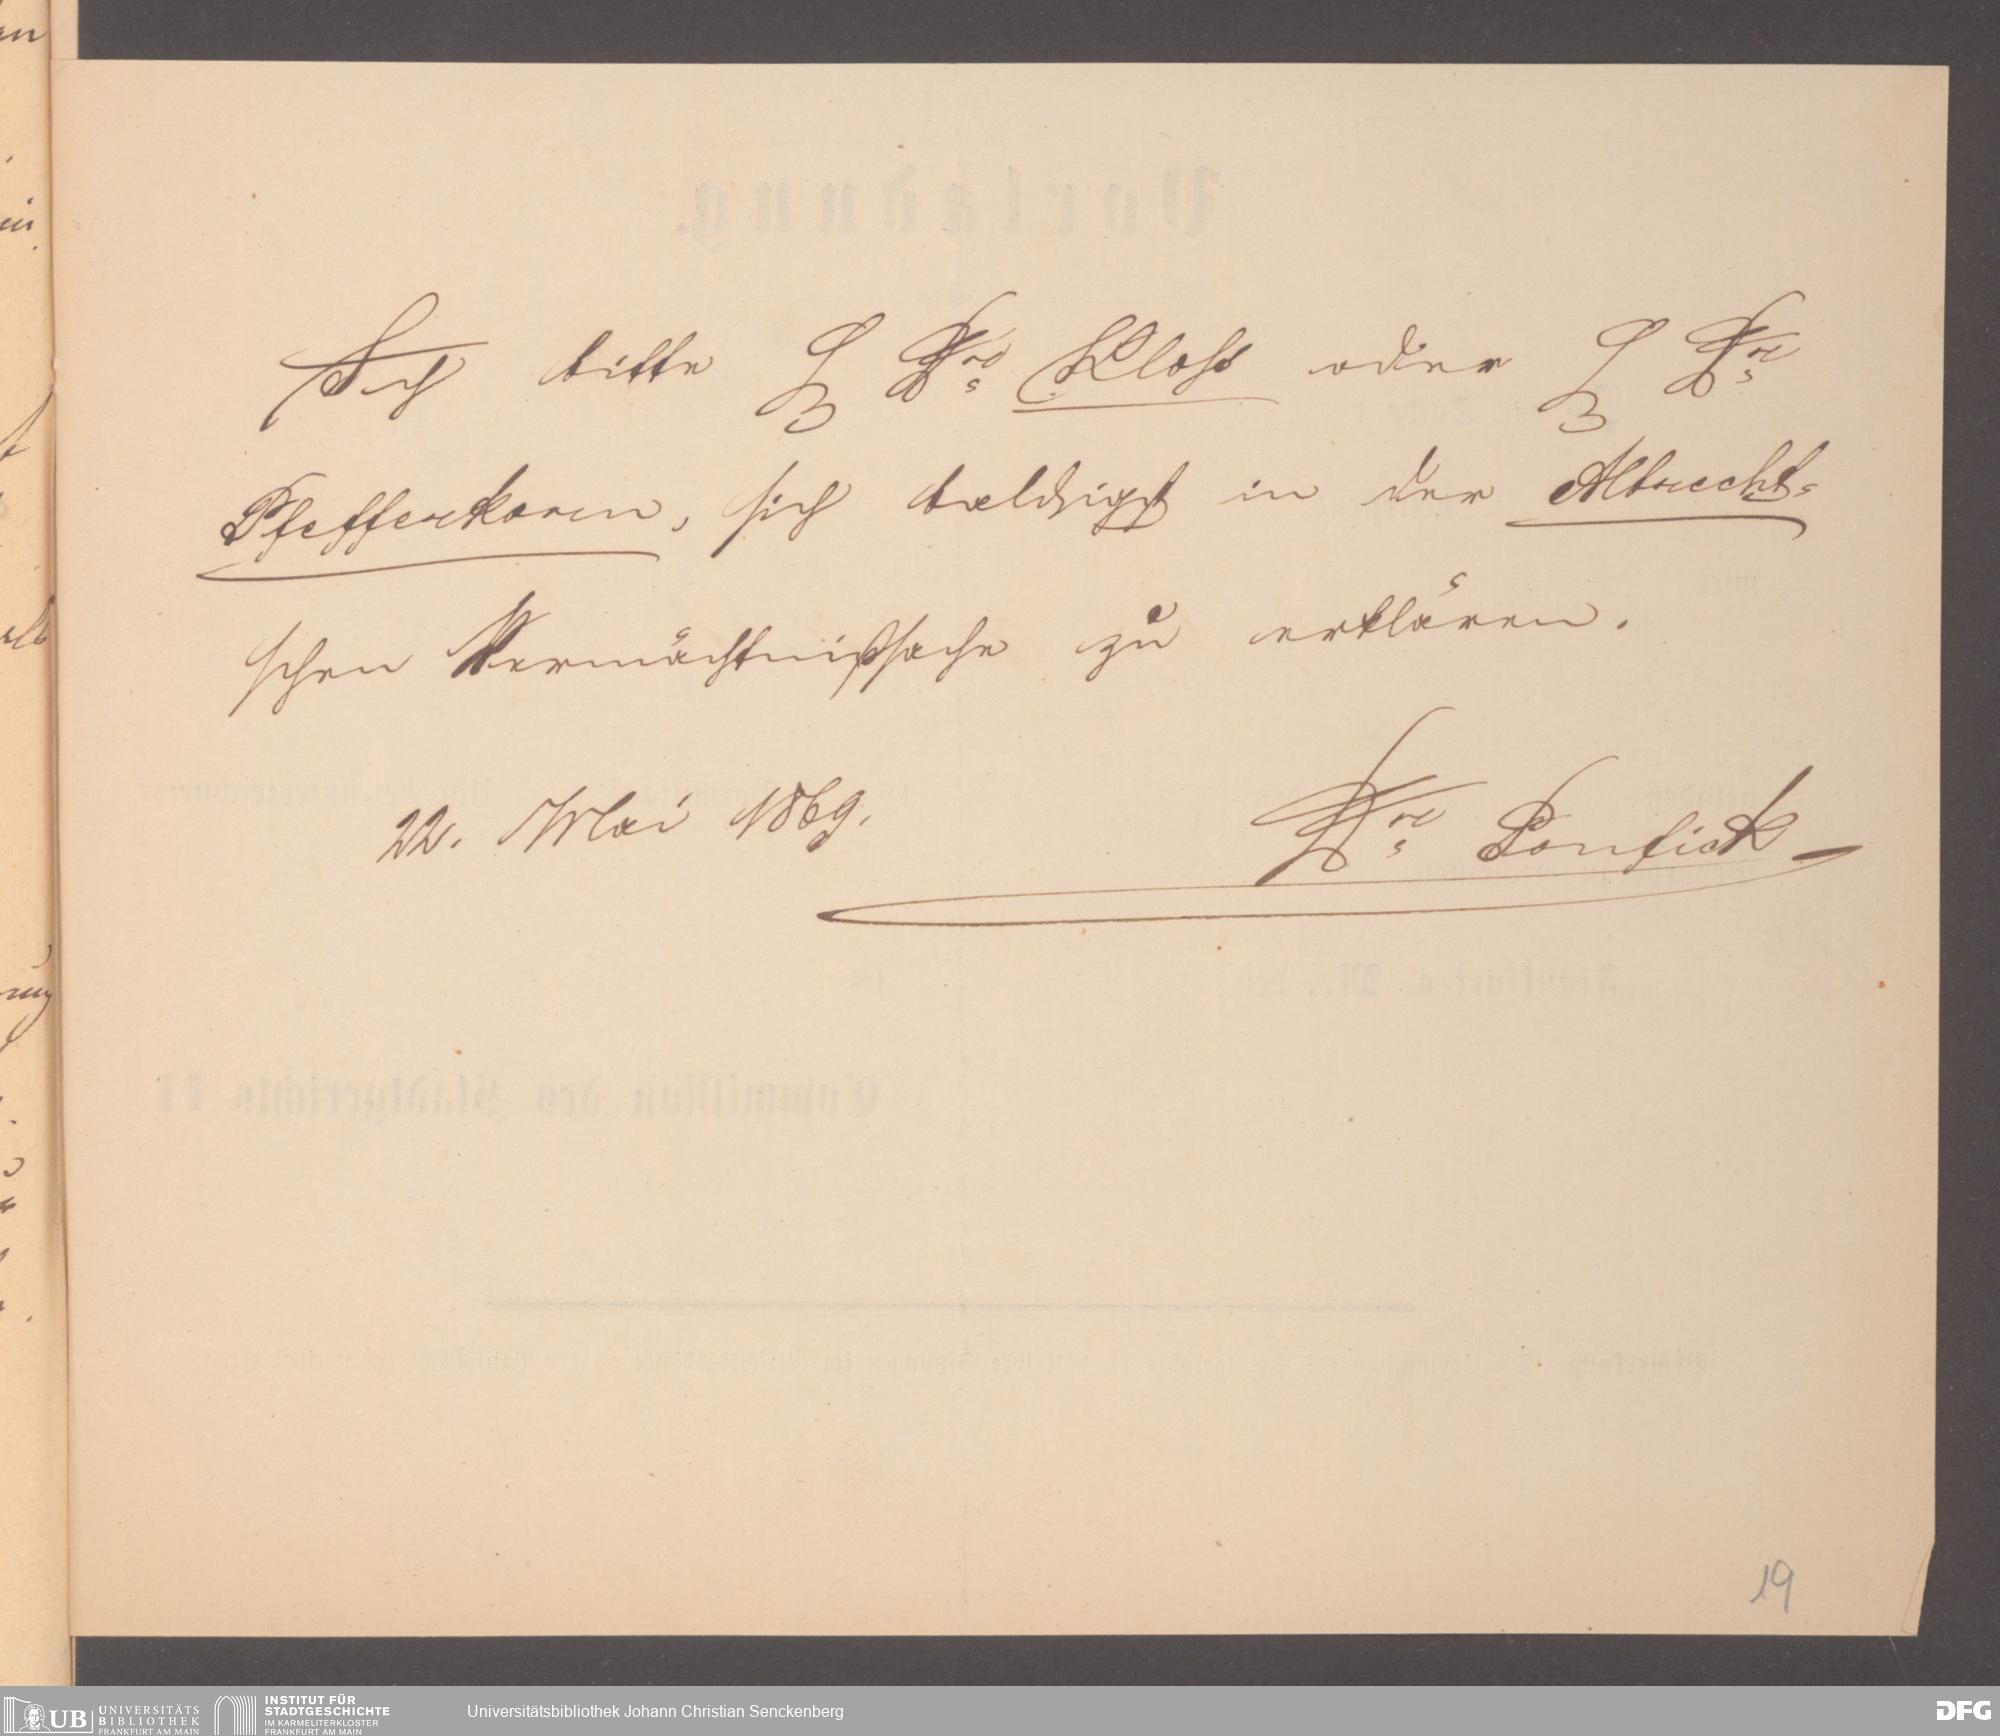 Ich bitte H Dr. Kloß oder H Dr.
Pfefferkorn, sich baldigst in der Albrecht-
schen Vermächtnißsache zu erklären.
22. Mai 1869.
Dr. Ponfick
19
UB UNIVERSITÄTS
BIBLIOTHEK
FRANKFURT AM MAIN
INSTITUT FÜR
STADTGESCHICHTE
IM KARMELITERKLOSTER
FRANKFURT AM MAIN
Universitätsbibliothek Johann Christian Senckenberg
DFG